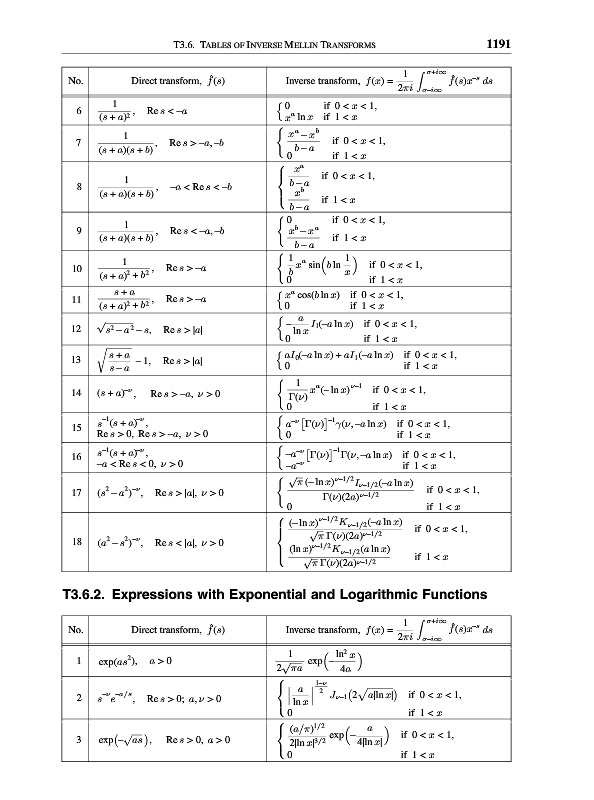 T3.6. TABLES OF INVERSE MELLIN TRANSFORMS 1191
No. Direct transform, f̂(s) Inverse transform, f(x) = 1/(2πi) ∫_{σ−i∞}^{σ+i∞} f̂(s)x^{−s} ds
6 1/(s + a)², Re s < −a { 0 if 0 < x < 1,
x^a ln x if 1 < x
7 1/((s + a)(s + b)), Re s > −a, −b { (x^a − x^b)/(b − a) if 0 < x < 1,
0 if 1 < x
8 1/((s + a)(s + b)), −a < Re s < −b { x^a/(b − a) if 0 < x < 1,
x^b/(b − a) if 1 < x
9 1/((s + a)(s + b)), Re s < −a, −b { 0 if 0 < x < 1,
(x^b − x^a)/(b − a) if 1 < x
10 1/((s + a)² + b²), Re s > −a { (1/b) x^a sin(b ln (1/x)) if 0 < x < 1,
0 if 1 < x
11 (s + a)/((s + a)² + b²), Re s > −a { x^a cos(b ln x) if 0 < x < 1,
0 if 1 < x
12 √(s² − a²) − s, Re s > |a| { −(a/ln x) I₁(−a ln x) if 0 < x < 1,
0 if 1 < x
13 √((s + a)/(s − a)) − 1, Re s > |a| { aI₀(−a ln x) + aI₁(−a ln x) if 0 < x < 1,
0 if 1 < x
14 (s + a)^{−ν}, Re s > −a, ν > 0 { (1/Γ(ν)) x^a(−ln x)^{ν−1} if 0 < x < 1,
0 if 1 < x
15 s^{−1}(s + a)^{−ν}, { a^{−ν} [Γ(ν)]^{−1} γ(ν, −a ln x) if 0 < x < 1,
Re s > 0, Re s > −a, ν > 0 0 if 1 < x
16 s^{−1}(s + a)^{−ν}, { −a^{−ν} [Γ(ν)]^{−1} Γ(ν, −a ln x) if 0 < x < 1,
−a < Re s < 0, ν > 0 −a^{−ν} if 1 < x
17 (s² − a²)^{−ν}, Re s > |a|, ν > 0 { √π (−ln x)^{ν−1/2} I_{ν−1/2}(−a ln x)/(Γ(ν)(2a)^{ν−1/2}) if 0 < x < 1,
0 if 1 < x
18 (a² − s²)^{−ν}, Re s < |a|, ν > 0 { (−ln x)^{ν−1/2} K_{ν−1/2}(−a ln x)/(√π Γ(ν)(2a)^{ν−1/2}) if 0 < x < 1,
(ln x)^{ν−1/2} K_{ν−1/2}(a ln x)/(√π Γ(ν)(2a)^{ν−1/2}) if 1 < x
T3.6.2. Expressions with Exponential and Logarithmic Functions
No. Direct transform, f̂(s) Inverse transform, f(x) = 1/(2πi) ∫_{σ−i∞}^{σ+i∞} f̂(s)x^{−s} ds
1 exp(as²), a > 0 1/(2√(πa)) exp(−ln² x/(4a))
2 s^{−ν}e^{−a/s}, Re s > 0; a, ν > 0 { |a/ln x|^{(1−ν)/2} J_{ν−1}(2√(a|ln x|)) if 0 < x < 1,
0 if 1 < x
3 exp(−√(as)), Re s > 0, a > 0 { ((a/π)^{1/2}/(2|ln x|^{3/2})) exp(−a/(4|ln x|)) if 0 < x < 1,
0 if 1 < x